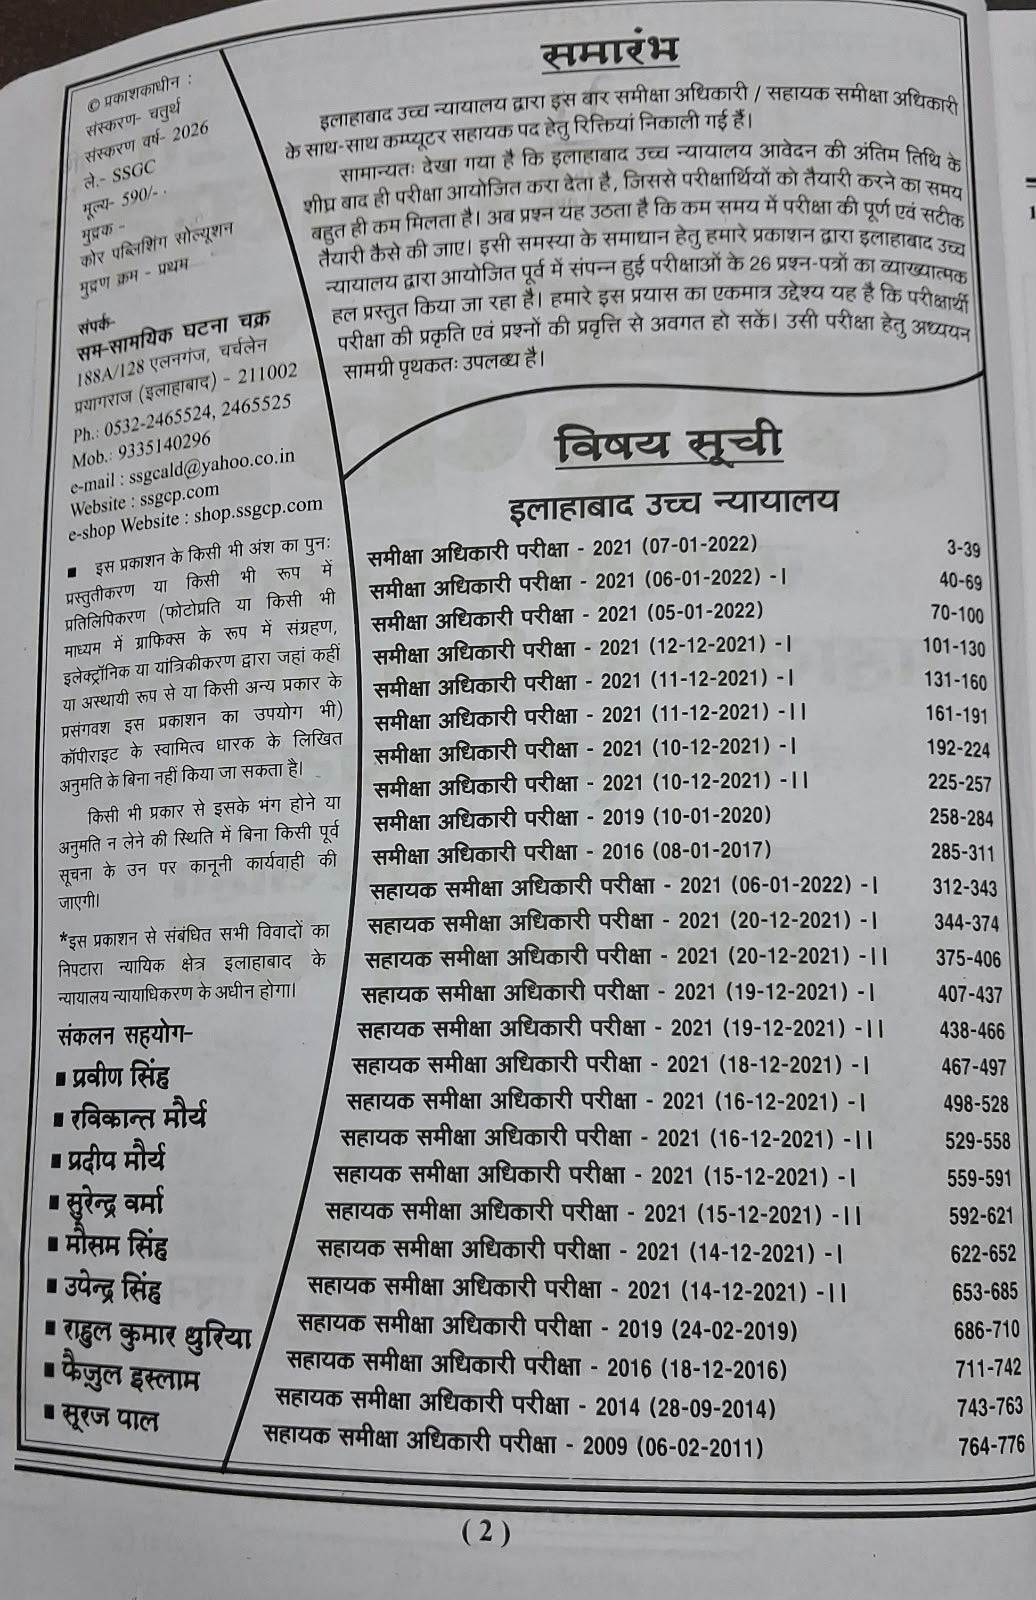 © प्रकाशकाधीन :
संस्करण- चतुर्थ
संस्करण वर्ष- 2026
ले.- SSGC
मूल्य- 590/-
मुद्रक -
कोर पब्लिशिंग सोल्यूशन
मुद्रण क्रम - प्रथम
संपर्क-
सम-सामयिक घटना चक्र
188A/128 एलनगंज, चर्चलेन
प्रयागराज (इलाहाबाद) - 211002
Ph.: 0532-2465524, 2465525
Mob.: 9335140296
e-mail : ssgcald@yahoo.co.in
Website : ssgcp.com
e-shop Website : shop.ssgcp.com
■ इस प्रकाशन के किसी भी अंश का पुनः
प्रस्तुतीकरण या किसी भी रूप में
प्रतिलिपिकरण (फोटोप्रति या किसी भी
माध्यम में ग्राफिक्स के रूप में संग्रहण,
इलेक्ट्रॉनिक या यांत्रिकीकरण द्वारा जहां कहीं
या अस्थायी रूप से या किसी अन्य प्रकार के
प्रसंगवश इस प्रकाशन का उपयोग भी)
कॉपीराइट के स्वामित्व धारक के लिखित
अनुमति के बिना नहीं किया जा सकता है।
किसी भी प्रकार से इसके भंग होने या
अनुमति न लेने की स्थिति में बिना किसी पूर्व
सूचना के उन पर कानूनी कार्यवाही की
जाएगी।
*इस प्रकाशन से संबंधित सभी विवादों का
निपटारा न्यायिक क्षेत्र इलाहाबाद के
न्यायालय न्यायाधिकरण के अधीन होगा।
संकलन सहयोग-
■ प्रवीण सिंह
■ रविकान्त मौर्य
■ प्रदीप मौर्य
■ सुरेन्द्र वर्मा
■ मौसम सिंह
■ उपेन्द्र सिंह
■ राहुल कुमार धुरिया
■ फैजुल इस्लाम
■ सूरज पाल
समारंभ
इलाहाबाद उच्च न्यायालय द्वारा इस बार समीक्षा अधिकारी / सहायक समीक्षा अधिकारी
के साथ-साथ कम्प्यूटर सहायक पद हेतु रिक्तियां निकाली गई हैं।
सामान्यतः देखा गया है कि इलाहाबाद उच्च न्यायालय आवेदन की अंतिम तिथि के
शीघ्र बाद ही परीक्षा आयोजित करा देता है, जिससे परीक्षार्थियों को तैयारी करने का समय
बहुत ही कम मिलता है। अब प्रश्न यह उठता है कि कम समय में परीक्षा की पूर्ण एवं सटीक
तैयारी कैसे की जाए। इसी समस्या के समाधान हेतु हमारे प्रकाशन द्वारा इलाहाबाद उच्च
न्यायालय द्वारा आयोजित पूर्व में संपन्न हुई परीक्षाओं के 26 प्रश्न-पत्रों का व्याख्यात्मक
हल प्रस्तुत किया जा रहा है। हमारे इस प्रयास का एकमात्र उद्देश्य यह है कि परीक्षार्थी
परीक्षा की प्रकृति एवं प्रश्नों की प्रवृत्ति से अवगत हो सकें। उसी परीक्षा हेतु अध्ययन
सामग्री पृथकतः उपलब्ध है।
विषय सूची
इलाहाबाद उच्च न्यायालय
समीक्षा अधिकारी परीक्षा - 2021 (07-01-2022) 3-39
समीक्षा अधिकारी परीक्षा - 2021 (06-01-2022) -I 40-69
समीक्षा अधिकारी परीक्षा - 2021 (05-01-2022) 70-100
समीक्षा अधिकारी परीक्षा - 2021 (12-12-2021) -I 101-130
समीक्षा अधिकारी परीक्षा - 2021 (11-12-2021) -I 131-160
समीक्षा अधिकारी परीक्षा - 2021 (11-12-2021) -II 161-191
समीक्षा अधिकारी परीक्षा - 2021 (10-12-2021) -I 192-224
समीक्षा अधिकारी परीक्षा - 2021 (10-12-2021) -II 225-257
समीक्षा अधिकारी परीक्षा - 2019 (10-01-2020) 258-284
समीक्षा अधिकारी परीक्षा - 2016 (08-01-2017) 285-311
सहायक समीक्षा अधिकारी परीक्षा - 2021 (06-01-2022) -I 312-343
सहायक समीक्षा अधिकारी परीक्षा - 2021 (20-12-2021) -I 344-374
सहायक समीक्षा अधिकारी परीक्षा - 2021 (20-12-2021) -II 375-406
सहायक समीक्षा अधिकारी परीक्षा - 2021 (19-12-2021) -I 407-437
सहायक समीक्षा अधिकारी परीक्षा - 2021 (19-12-2021) -II 438-466
सहायक समीक्षा अधिकारी परीक्षा - 2021 (18-12-2021) -I 467-497
सहायक समीक्षा अधिकारी परीक्षा - 2021 (16-12-2021) -I 498-528
सहायक समीक्षा अधिकारी परीक्षा - 2021 (16-12-2021) -II 529-558
सहायक समीक्षा अधिकारी परीक्षा - 2021 (15-12-2021) -I 559-591
सहायक समीक्षा अधिकारी परीक्षा - 2021 (15-12-2021) -II 592-621
सहायक समीक्षा अधिकारी परीक्षा - 2021 (14-12-2021) -I 622-652
सहायक समीक्षा अधिकारी परीक्षा - 2021 (14-12-2021) -II 653-685
सहायक समीक्षा अधिकारी परीक्षा - 2019 (24-02-2019) 686-710
सहायक समीक्षा अधिकारी परीक्षा - 2016 (18-12-2016) 711-742
सहायक समीक्षा अधिकारी परीक्षा - 2014 (28-09-2014) 743-763
सहायक समीक्षा अधिकारी परीक्षा - 2009 (06-02-2011) 764-776
( 2 )